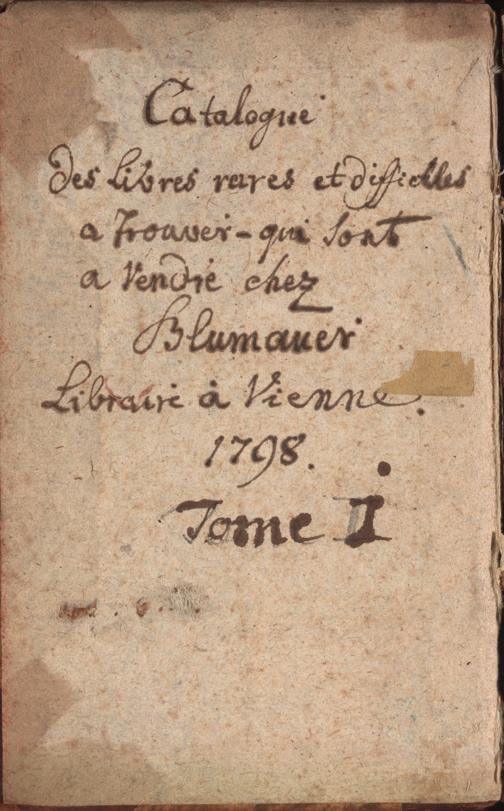 Catalogue
des livres rares et difficiles
a Trouver - qui sont
a Vendre chez
Blumauer
Libraire à Vienne.
1798.
Tome I